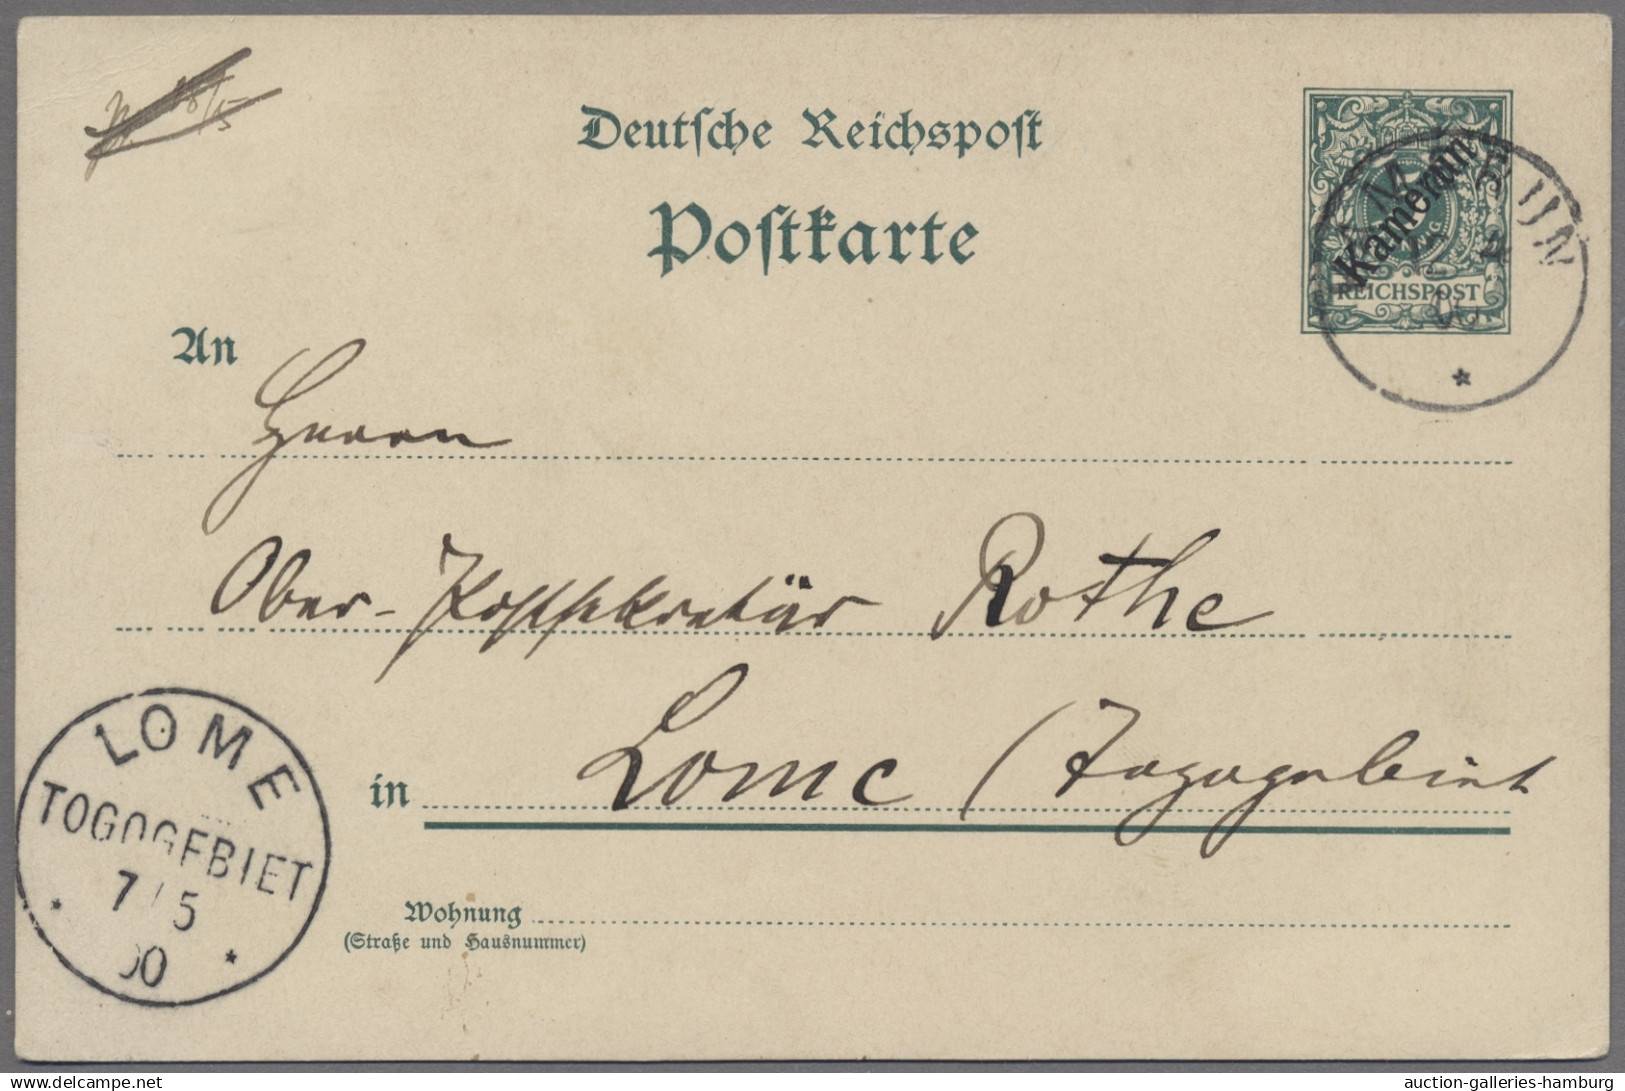 18/5
Deutsche Reichspost
Postkarte
Kamerun
KAMERUN
4
REICHSPOST
*
An
Herrn
Ober-Postsekretär Rothe
in Lome (Togogebiet
LOME
TOGOGEBIET
7/5
00
* *
Wohnung
(Straße und Hausnummer)
www.delcampe.net
auction-galleries-hamburg